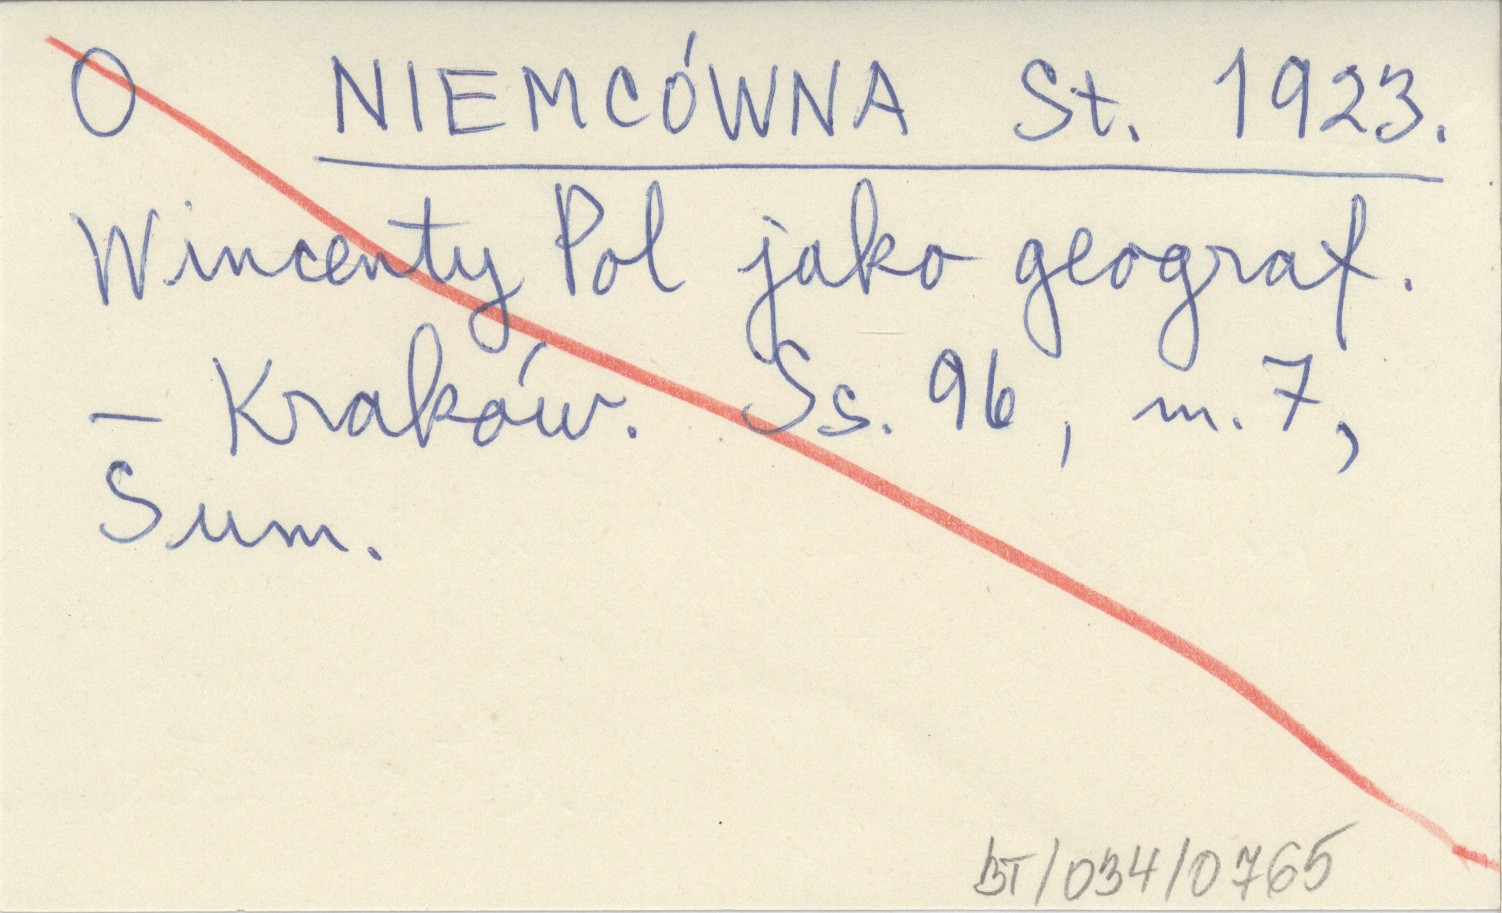 O NIEMCÓWNA St. 1923.
Wincenty Pol jako geograf.
– Kraków. Ss. 96, m. 7,
Sum.
BT/034/0765